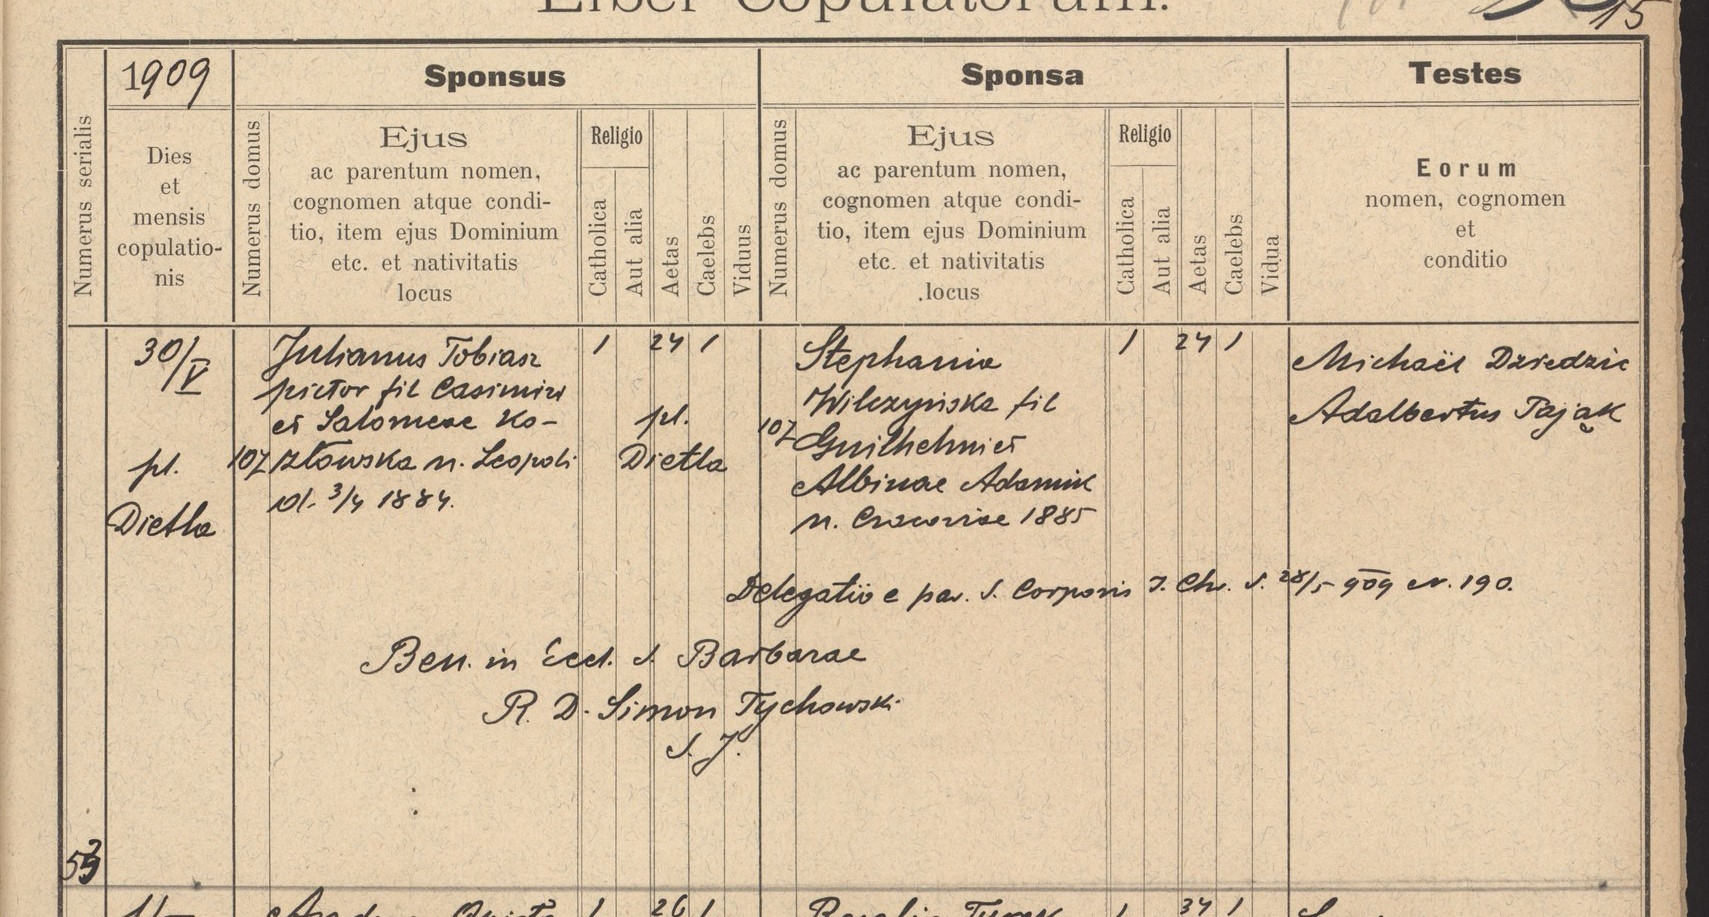 Liber Copulatorum.
15
1909
Sponsus
Sponsa
Testes
Numerus serialis
Dies
et
mensis
copulatio-
nis
Numerus domus
Ejus
ac parentum nomen,
cognomen atque condi-
tio, item ejus Dominium
etc. et nativitatis
locus
Religio
Catholica
Aut alia
Aetas
Caelebs
Viduus
Numerus domus
Ejus
ac parentum nomen,
cognomen atque condi-
tio, item ejus Dominium
etc. et nativitatis
locus
Religio
Catholica
Aut alia
Aetas
Caelebs
Vidua
Eorum
nomen, cognomen
et
conditio
30/V
pl.
Dietla
107
Julianus Tobiasz
pictor fil Casimiri
et Salomeae Ko-
złowska n. Leopoli
3/4 1884.
1 24 1
pl.
Dietla
107
Stephania
Wilczyńska fil
Guilhelmi et
Albinae Adamik
n. Cracoviae 1885
1 24 1
Michaël Dziedzic
Adalbertus Pająk
Delegatio e par. S. Corporis J. Chr. d. 28/5 909 N. 190.
Ben. in Eccl. S. Barbarae
R. D. Simon Tychowski
S. J.
1 26 1
Rosalia
1 34 1